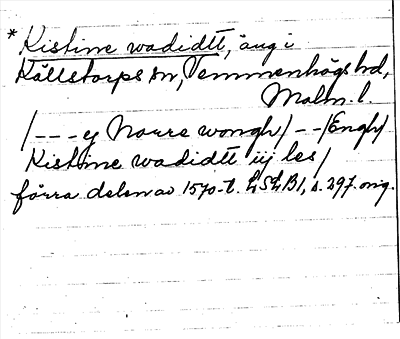 * Kistine wadidtt, äng i
Källstorps sn, Vemmenhögs hd,
Malm. l.
/--- ej Norre wongh/ --/Engh/
Kistine wadidtt iij les/
förra delen av 1570-t. LSLB1, s. 297. orig.